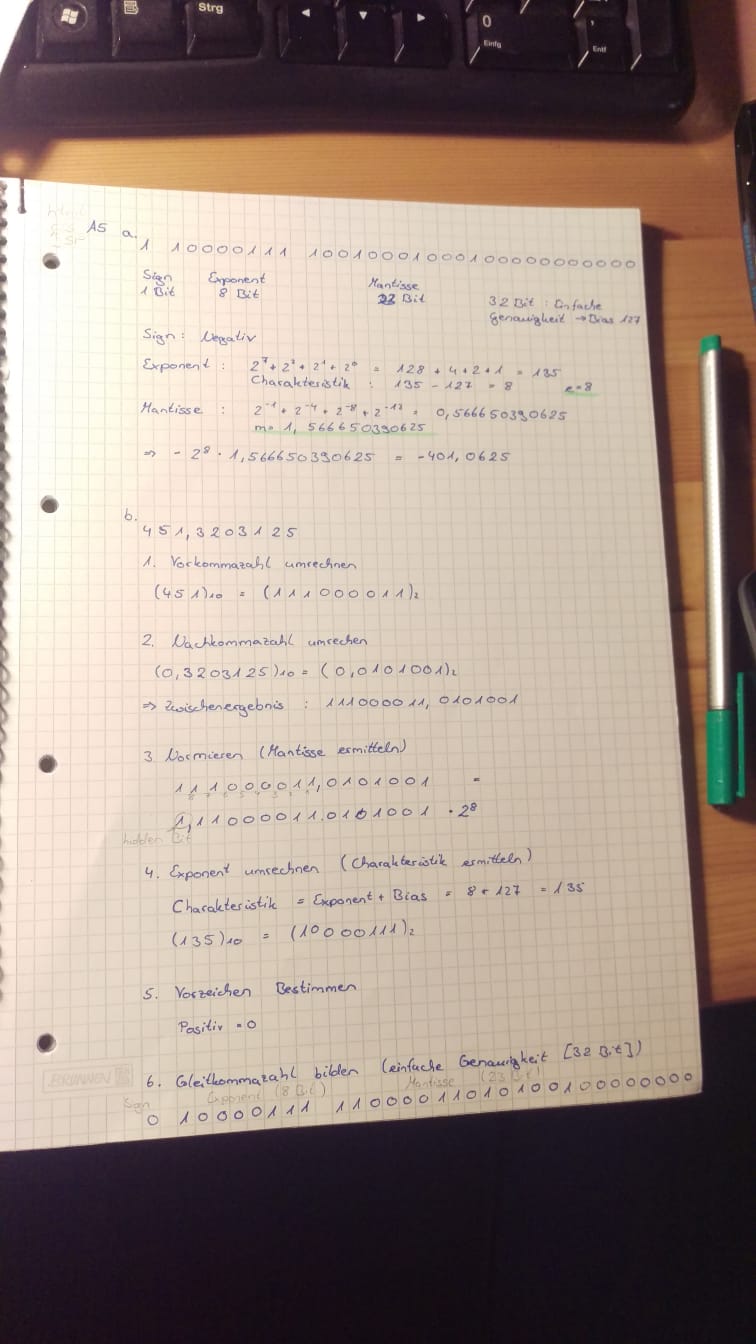 Strg
0
Einfg
,
Entf
A5 a.
1 10000111 10010001000100000000000
Sign Exponent Mantisse
1 Bit 8 Bit 23 Bit
32 Bit : Einfache
Genauigkeit → Bias 127
Sign : Negativ
Exponent : 2⁷ + 2² + 2¹ + 2⁰ = 128 + 4 + 2 + 1 = 135
Charakteristik : 135 - 127 = 8 e=8
Mantisse : 2⁻¹ + 2⁻⁴ + 2⁻⁸ + 2⁻¹² = 0,566650390625
m= 1,566650390625
⇒ - 2⁸ · 1,566650390625 = -401,0625
b.
451,3203125
1. Vorkommazahl umrechnen
(451)₁₀ = (111000011)₂
2. Nachkommazahl umrechen
(0,3203125)₁₀ = (0,0101001)₂
⇒ Zwischenergebnis : 111000011,0101001
3. Normieren (Mantisse ermitteln)
111000011,0101001 =
1,11000011.0101001 · 2⁸
hidden Bit
4. Exponent umrechnen (Charakteristik ermitteln)
Charakteristik = Exponent + Bias = 8 + 127 = 135
(135)₁₀ = (10000111)₂
5. Vorzeichen Bestimmen
Positiv = 0
6. Gleitkommazahl bilden (einfache Genauigkeit [32 Bit])
BRUNNEN
Sign Exponent (8 Bit) Mantisse (23 Bit)
0 10000111 11000011010100100000000